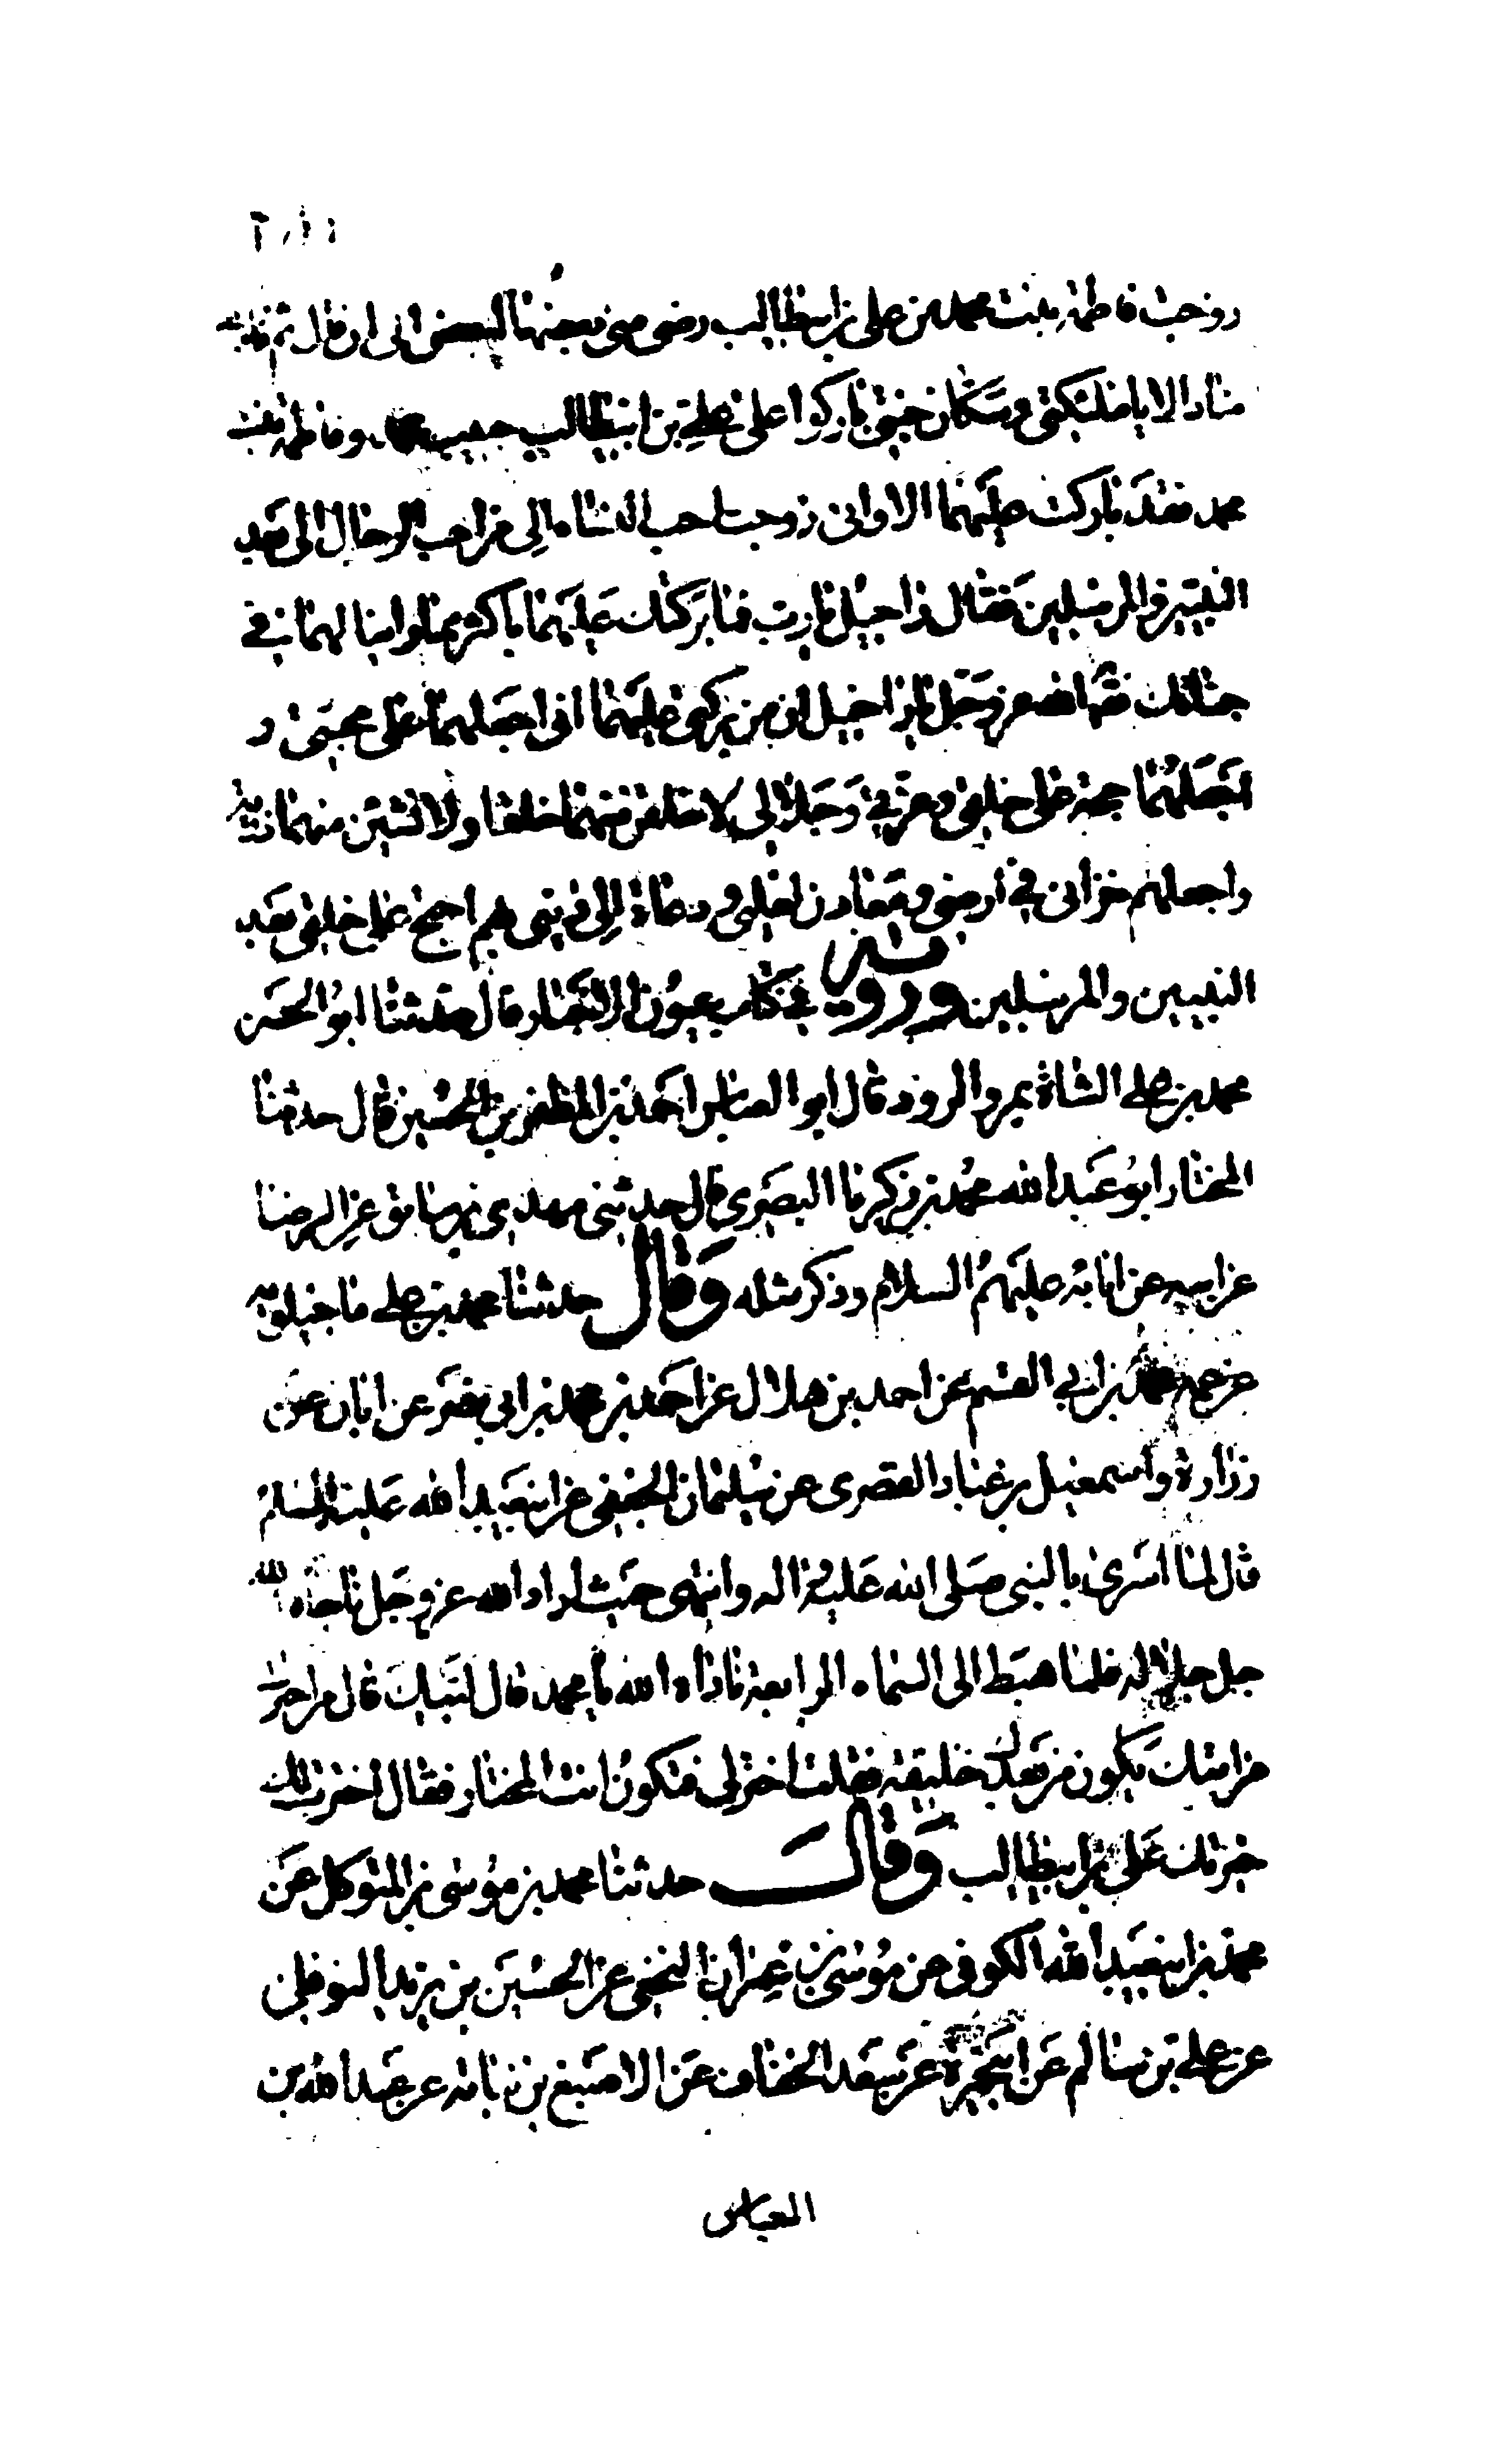 زوجت فاطمة بنت محمد من علي بن ابيطالب رضى منى بعضهما لبعض الى ان قال ثم نادى
مناد الا يا ملئكتى وسكان جنتى باركوا على علي بن ابيطالب حبيب محمد وفاطمة بنت
محمد فقد باركت عليهما الا وانى زوجت احب النساء الي من احب الرجال الي بعد
النبيين والمرسلين فقال راحيل يا رب فما بركتك عليهما باكثر مما راينا لهما في
جنانك فقال عز وجل يا راحيل ان من بركتى عليهما انى اجمعهما على محبتى و
اجعلهما حجة على خلقى وعزتي وجلالي لاخلقن منهما خلقا ولانشئن منهما ذرية
واجعلهم خزانى في ارضى ومعادن لعلمى ودعاة الى دينى بهم احتج على خلقى بعد
النبيين والمرسلين ورواه في كتاب عيون الاخبار قال حدثنا ابو الحسن
محمد بن علي الشاة بمرو الرود قال ابو العباس احمد بن المظفر بن الحسين قال حدثنا
المختار ابو عبد الله محمد بن زكريا البصري قال حدثنى مهدى بن سابق عن الرضا
عن ابيه عن ابائه عليهم السلام وذكر مثله وقال حدثنا محمد بن علي ماجيلويه
عن عمه محمد بن ابي القسم عن احمد بن هلال عن احمد بن محمد بن ابي نصر عن ابان عن
زرارة واسمعيل بن عباد القصرى عن سليمان الجعفى عن ابيعبد الله عليه السلام
قال لما اسرى بالنبى صلى الله عليه واله وانتهى حيث اراد الله عز وجل ناجاه الله
جل جلاله فلما هبط الى السماء الرابعة ناداه الله يا محمد قال لبيك قال من اخترت
من امتك يكون من بعدك خليفة فقلت اختر لى فتكون انت المختار فقال اخترت لك
خيرتك على بن ابيطالب وقال حدثنا محمد بن موسى بن المتوكل عن
محمد بن ابيعبد الله الكوفى عن موسى بن عمران النخعى عن الحسين بن يزيد النوفلى
عن على بن سالم عن ابيحمزة عن سعد الخفاف عن الاصبغ بن نباته عن عبد الله بن
العباس